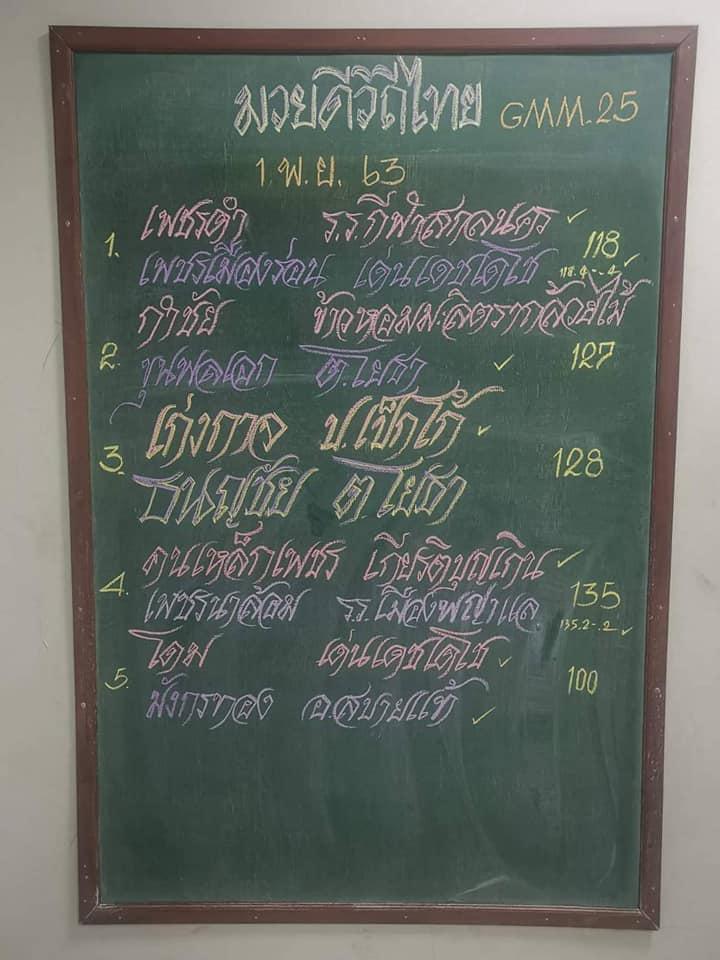 มวยดีวิถีไทย GMM.25
1 พ.ย. 63
เพชรดำ ร.ร.กีฬาสกลนคร ✓
1. 118
เพชรเมืองร่อน เด่นเดชโดโช 118.4-.4 ✓
กำชัย ข้าวหอมมะลิตรากล้วยไม้ ✓
2. ขุนพลเอก ต.โยธา ✓ 127
เก่งกาจ ป.เช็กโก้ ✓
3. 128
ธนญชัย ต.โยธา
คนเหล็กเพชร เกียรติบุญเกิน ✓
4. 135
เพชรนาล้อม ร.ร.เมืองพญาแล 135.2-.2 ✓
โดม เด่นเดชโดโช ✓
5. 100
มังกรทอง อ.สบายแท้ ✓